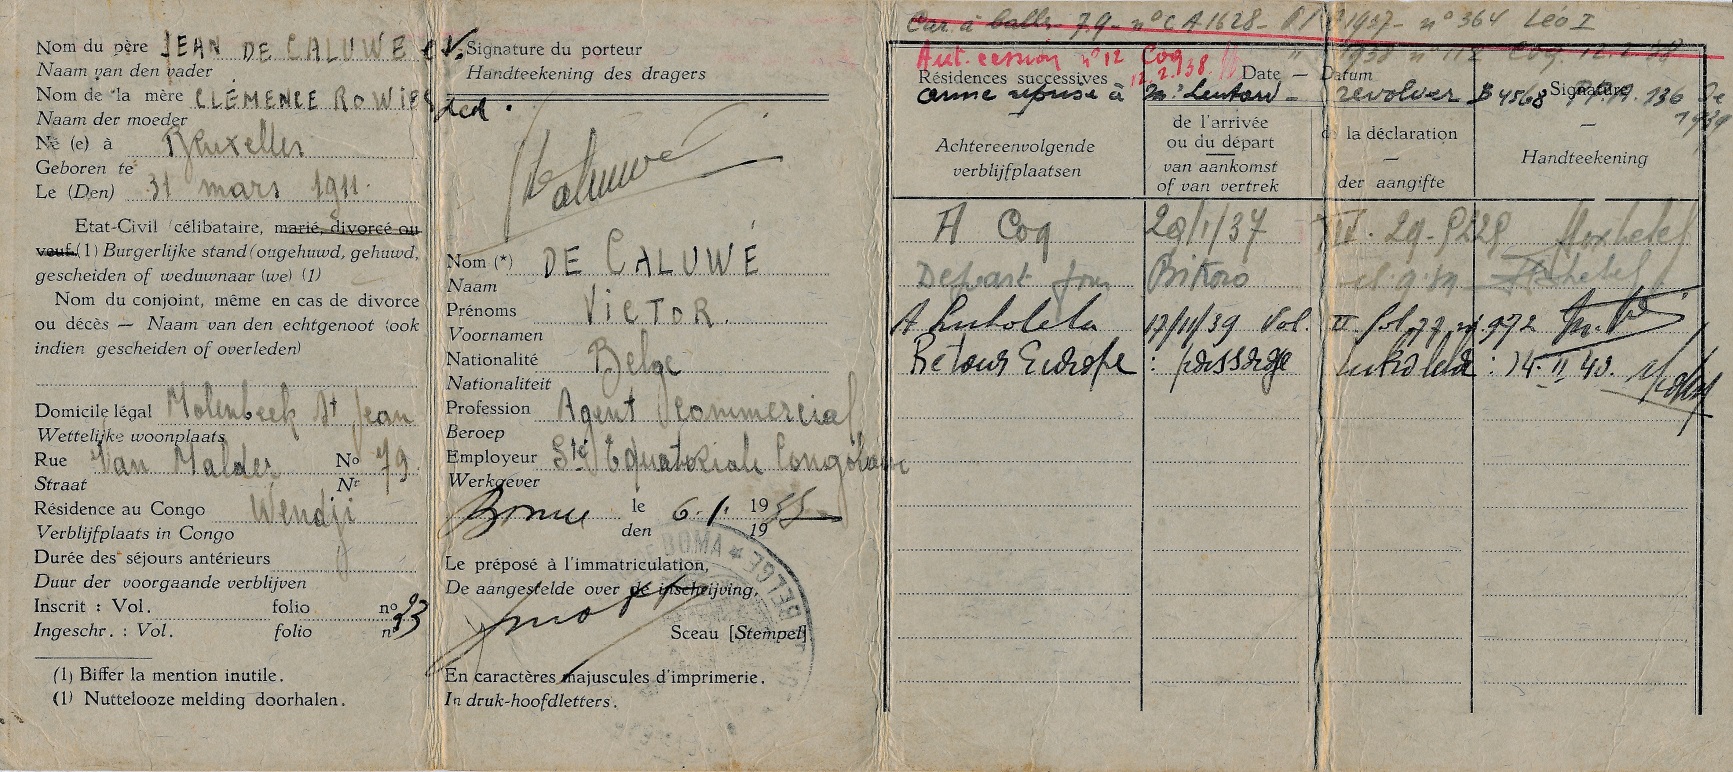 Nom du père JEAN DE CALUWE ev.
Naam van den vader
Nom de la mère CLÉMENCE ROWIES ded.
Naam der moeder
Né (e) à Bruxelles
Geboren te
Le (Den) 31 mars 1911.
Etat-Civil (célibataire, marié, divorcé ou
veuf.(1) Burgerlijke stand (ougehuwd, gehuwd,
gescheiden of weduwnaar (we) (1)
Nom du conjoint, même en cas de divorce
ou décès — Naam van den echtgenoot (ook
indien gescheiden of overleden)
Domicile légal Molenbeek St Jean
Wettelijke woonplaats
Rue Van Malder No 79
Straat Nr
Résidence au Congo Wendji
Verblijfplaats in Congo
Durée des séjours antérieurs
Duur der voorgaande verblijven
Inscrit : Vol. folio no 23
Ingeschr. : Vol. folio n
(1) Biffer la mention inutile.
(1) Nuttelooze melding doorhalen.
Signature du porteur
Handteekening des dragers
Nom (*) DE CALUWÉ
Naam
Prénoms VICTOR.
Voornamen
Nationalité Belge
Nationaliteit
Profession Agent Commercial
Beroep
Employeur Sté Equatoriale Congolaise
Werkgever
le 6.1. 19
den 19
Le préposé à l'immatriculation,
De aangestelde over de inschrijving,
Sceau [Stempel]
DE BOMA * BELGE
En caractères majuscules d'imprimerie.
In druk-hoofdletters.
à balles 79 - no CA1628 - 1937 - no 364 Léo I
1938 no 112 Coq. 12.2.38
Aut. cession no 12 Coq
12.2.38.
Résidences successives Date — Datum Signature
arme reprise à revolver B4568 136 de
1939
—
Achtereenvolgende
verblijfplaatsen
de l'arrivée
ou du départ
van aankomst
of van vertrek
de la déclaration
—
der aangifte
—
Handteekening
A Coq 29/1/37
Départ pour Bikoro
A Lukolela 17/11/39 Vol. II fol. 77, no 972
Retour Europe : passage Lukolela : 14.II 40.